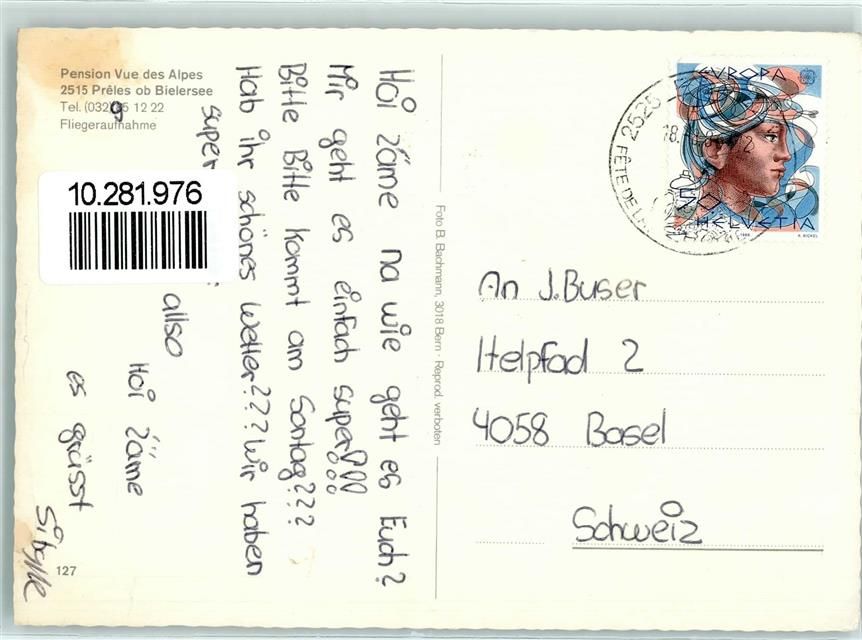 Pension Vue des Alpes
2515 Prêles ob Bielersee
Tel. (032) 95 12 22
Fliegeraufnahme
10.281.976
Hoi zäme na wie geht es Euch?
Mir geht es einfach super!!!
Bitte Bitte kommt am Sontag???
Hab ihr schönes Wetter??? Wir haben
super
allso
Hoi zäme
es grüsst
Sibylle
127
Foto B. Bachmann, 3018 Bern · Reprod. verboten
EUROPA
50
HELVETIA
1986
2525
FÊTE DE LA
An J. Buser
Itelpfad 2
4058 Basel
Schweiz